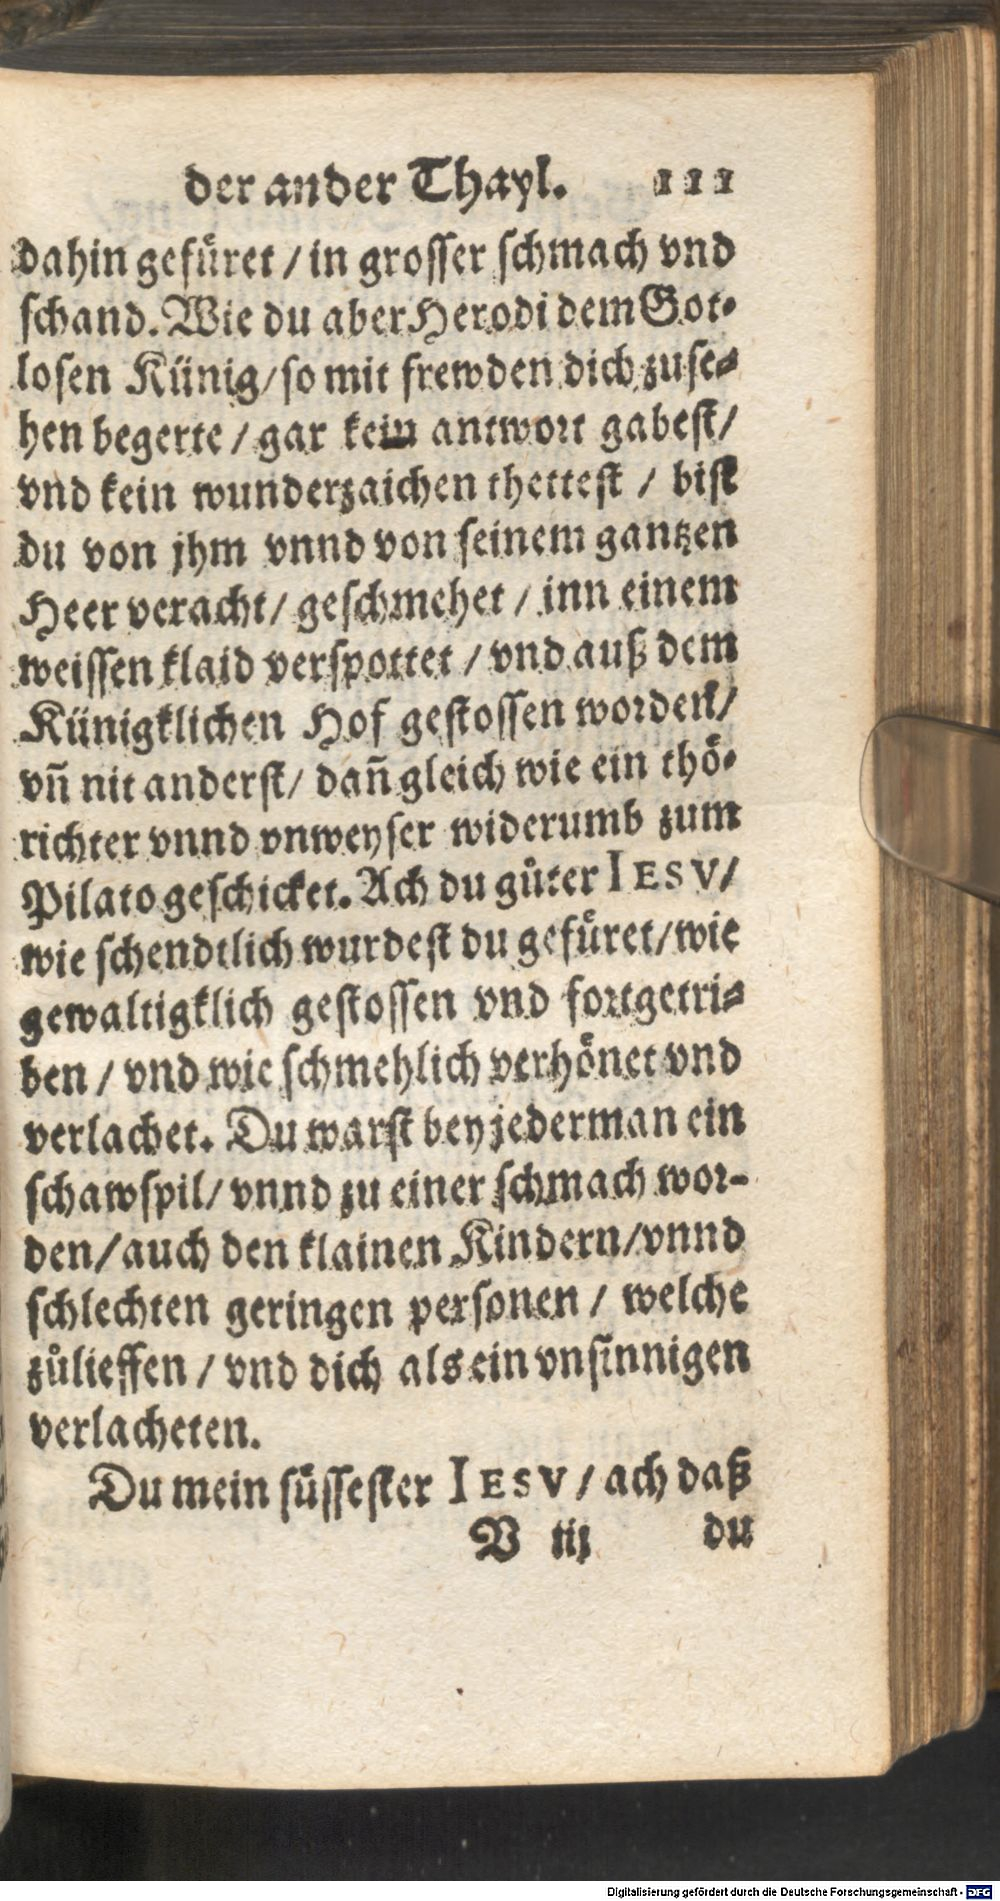 der ander Thayl. 111
dahin gefüret / in grosser schmach vnd
schand. Wie du aber Herodi dem Got-
losen Künig / so mit frewden dich zu se-
hen begerte / gar kein antwort gabest /
vnd kein wunderzaichen thettest / bist
du von jhm vnnd von seinem gantzen
Heer veracht / geschmehet / inn einem
weissen klaid verspottet / vnd auß dem
Künigklichen Hof gestossen worden /
vñ nit anderst / dañ gleich wie ein thö-
richter vnnd vnweyser widerumb zum
Pilato geschicket. Ach du gůter IESV /
wie schendtlich wurdest du gefüret / wie
gewaltigklich gestossen vnd fortgetri-
ben / vnd wie schmehlich verhönet vnd
verlachet. Du warst bey jederman ein
schawspil / vnnd zu einer schmach wor-
den / auch den klainen Kindern / vnnd
schlechten geringen personen / welche
zůlieffen / vnd dich als ein vnsinnigen
verlacheten.
Du mein süssester IESV / ach daß
V iij du
Digitalisierung gefördert durch die Deutsche Forschungsgemeinschaft - DFG